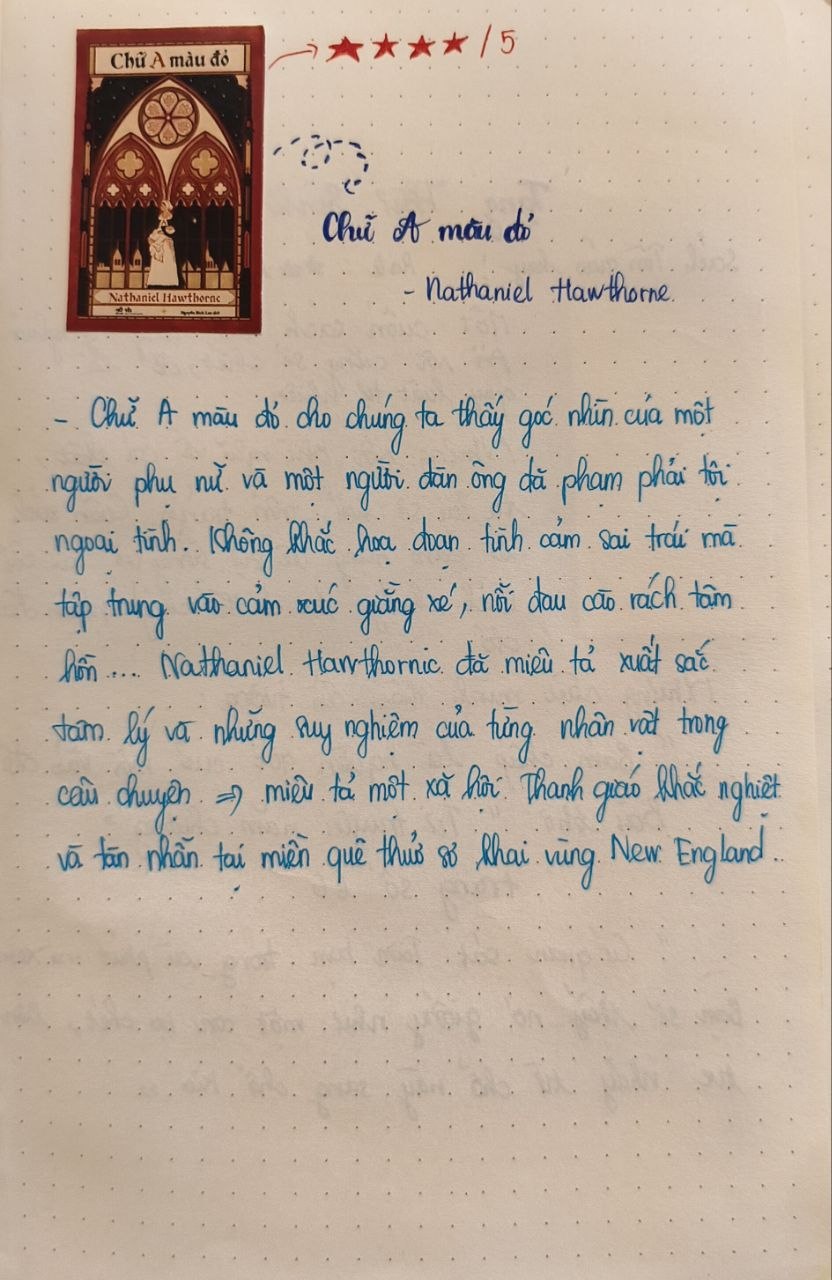 Chữ A màu đỏ
Nathaniel Hawthorne
/ 5
Chữ A màu đỏ
- Nathaniel Hawthorne.
- Chữ A màu đỏ cho chúng ta thấy góc nhìn của một
người phụ nữ và một người đàn ông đã phạm phải tội
ngoại tình. Không khắc hoạ đoạn tình cảm sai trái mà
tập trung vào cảm xúc giằng xé, nỗi đau cào rách tâm
hồn... Nathaniel Hawthornic đã miêu tả xuất sắc
tâm lý và những suy nghiệm của từng nhân vật trong
câu chuyện => miêu tả một xã hội Thanh giáo khắc nghiệt
và tàn nhẫn tại miền quê thuở sơ khai vùng New England.